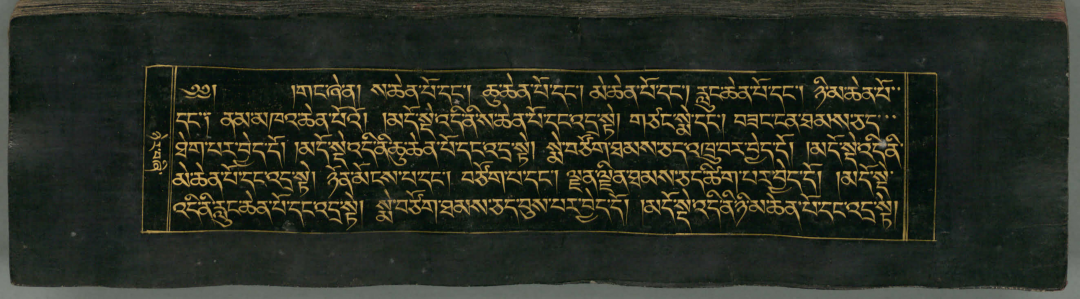 ༄༅། །གང་ཞེ་ན། ས་ཆེན་པོ་དང་། ཆུ་ཆེན་པོ་དང་། མེ་ཆེན་པོ་དང་། རླུང་ཆེན་པོ་དང་། ཉི་མ་ཆེན་པོ་
དང་། ནམ་མཁའ་ཆེན་པོའོ། །མདོ་སྡེ་འདི་ནི་ས་ཆེན་པོ་དང་འདྲ་སྟེ། གཙང་སྨེ་དང་། བཟང་ངན་ཐམས་ཅད་
ཐེག་པར་བྱེད་དོ། །མདོ་སྡེ་འདི་ནི་ཆུ་ཆེན་པོ་དང་འདྲ་སྟེ། སྨེ་བཙོག་ཐམས་ཅད་འཁྲུ་བར་བྱེད་དོ། །མདོ་སྡེ་འདི་ནི་
མེ་ཆེན་པོ་དང་འདྲ་སྟེ། ཉོན་མོངས་པ་དང་། བཙོག་པ་དང་། ལྷན་ལྷིན་ཐམས་ཅད་ཚོག་པར་བྱེད་དོ། །མདོ་སྡེ་
འདི་ནི་རླུང་ཆེན་པོ་དང་འདྲ་སྟེ། སྨེ་བཙོག་ཐམས་ཅད་བུས་པར་བྱེད་དོ། །མདོ་སྡེ་འདི་ནི་ཉི་མ་ཆེན་པོ་དང་འདྲ་སྟེ།